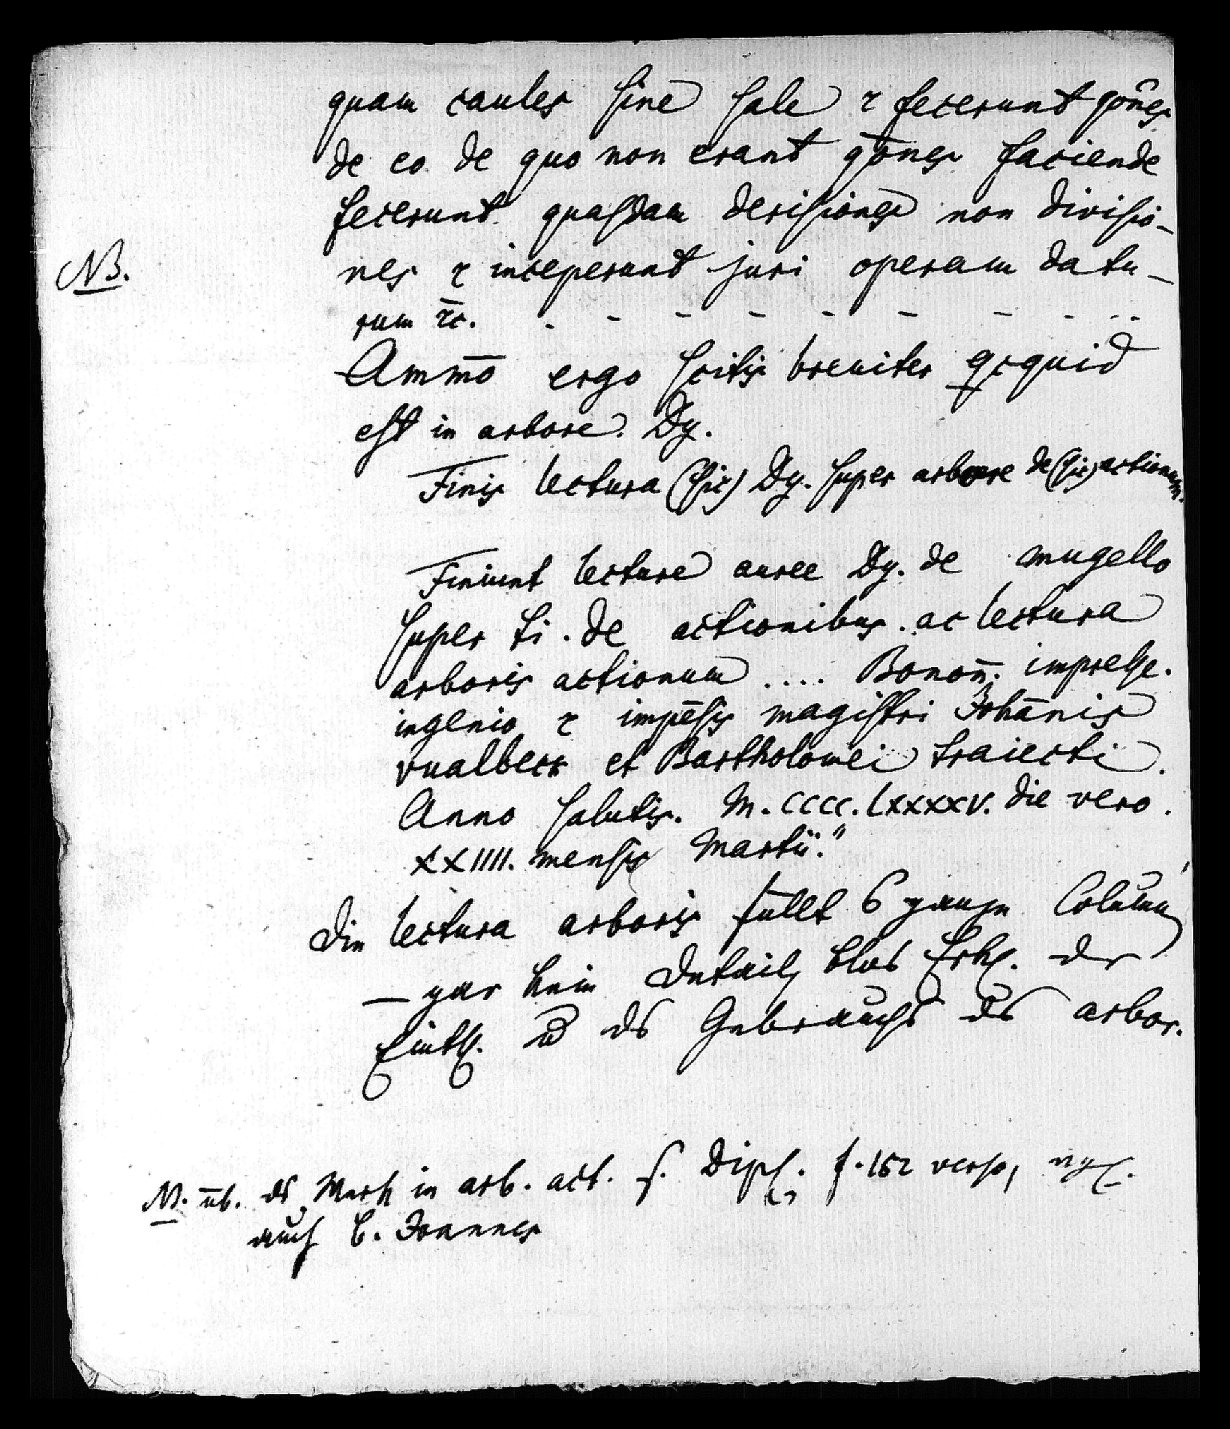 quam caules sine sale & fecerunt qōnes
de eo de quo non erant qōnes faciende
fecerunt quasdam derisiones non divisio-
NB. nes & inceperunt juri operam datu-
rum &c. . - - - - - - - ..
Ammō ergo scitis breuiter qcquid
est in arbore. Dy.
Finis lectura (sic) Dy. super arbore de (sic) actionum.
Finiunt lecture auree Dy. de mugello
super ti. de actionibus. ac lectura
arboris actionum .... Bonoñ. impresse.
ingenio & impēsis magistri Johānis
vualbeck et Bartholomei traiecti.
Anno salutis. M.CCCC.LXXXXV. die vero.
XXIIII. mensis Martii."
Die lectura arboris füllt 6 ganze Column
— gar kein Detail, blos Erkl. der
Einth. u d Gebrauchs ds arbor.
NB. üb. ds Werk in arb. act. s. Dipl. f. 152 verso, vgl.
auch b. Joannes